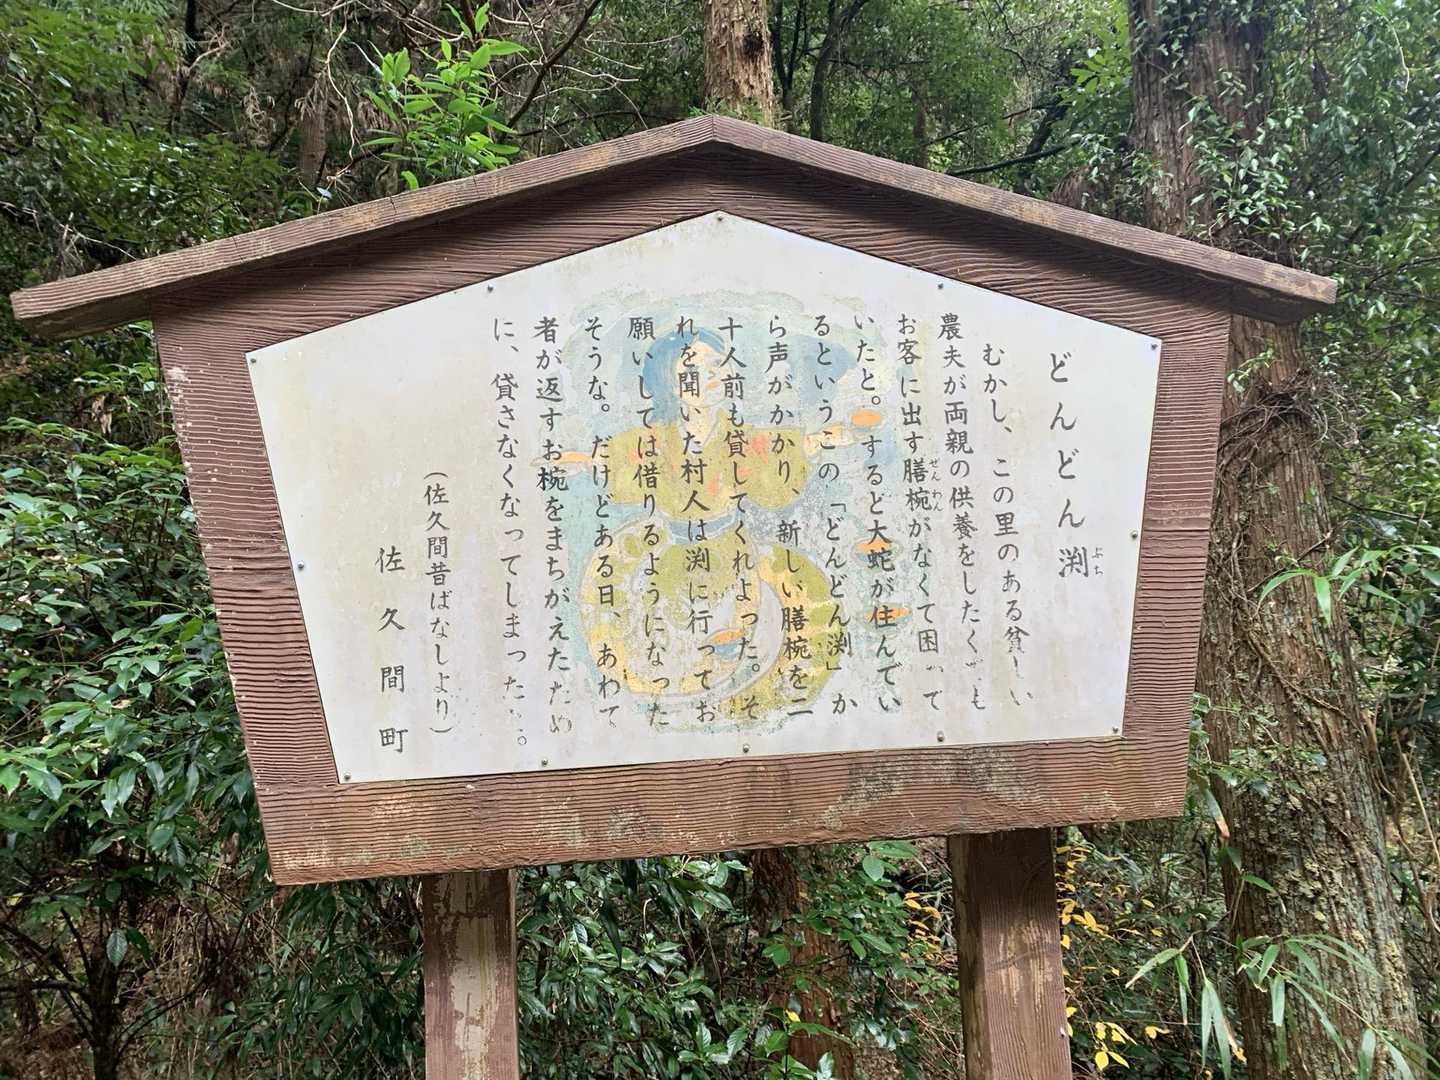 どんどん渕
ぶち
むかし、この里のある貧しい
農夫が両親の供養をしたくても
お客に出す膳椀がなくて困って
せんわん
いたと。すると大蛇が住んでい
るというこの「どんどん渕」か
ら声がかかり、新しい膳椀を二
十人前も貸してくれよった。そ
れを聞いた村人は渕に行ってお
願いしては借りるようになった
そうな。だけどある日、あわて
者が返すお椀をまちがえたため
に、貸さなくなってしまった。
(佐久間昔ばなしより)
佐久間町